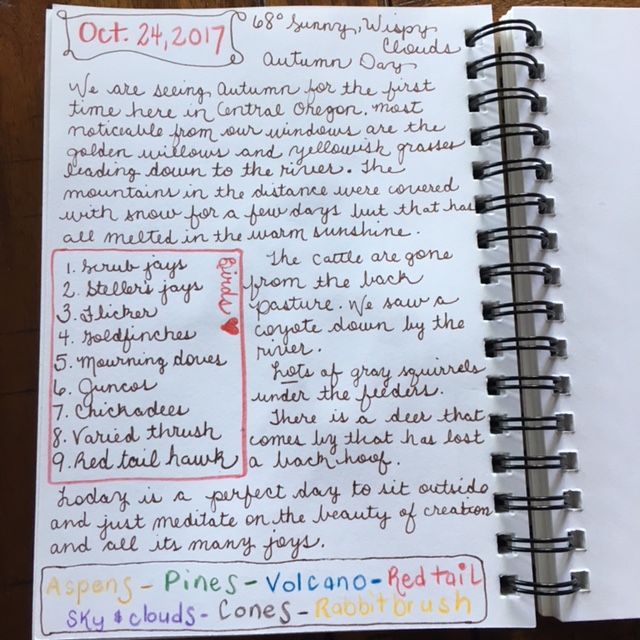 Oct. 24, 2017
68° Sunny, Wispy
Clouds
Autumn Day
We are seeing Autumn for the first
time here in Central Oregon. Most
noticeable from our windows are the
golden willows and yellowish grasses
leading down to the river. The
mountains in the distance were covered
with snow for a few days but that has
all melted in the warm sunshine.
Birds
1. Scrub jays
2. Stellers jays
3. Flicker
4. Goldfinches
5. Mourning doves
6. Juncos
7. Chickadees
8. Varied thrush
9. Red tail hawk
The cattle are gone
from the back
pasture. We saw a
coyote down by the
river.
Lots of gray squirrels
under the feeders.
There is a deer that
comes by that has lost
a back hoof.
Today is a perfect day to sit outside
and just meditate on the beauty of creation
and all its many joys.
Aspens - Pines - Volcano - Red tail
Sky & clouds - Cones - Rabbitbrush